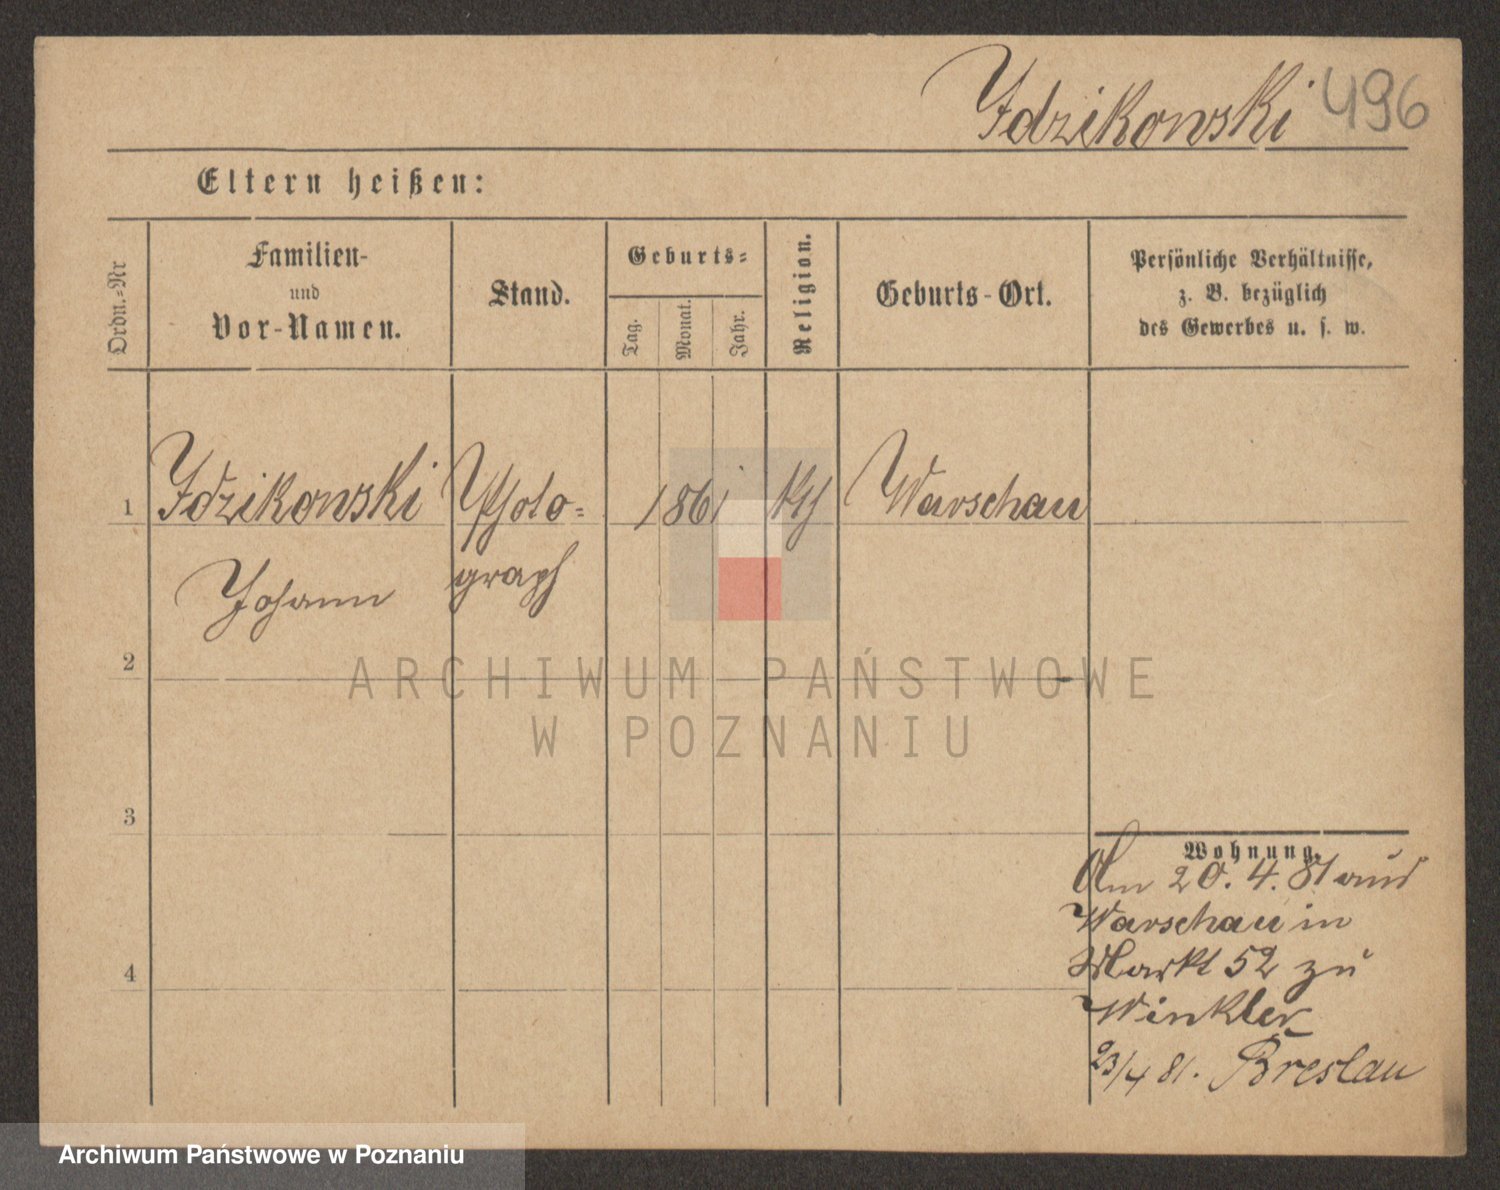 Idzikowski 496
Eltern heißen:
Ordn.-Nr
Familien-
und
Vor-Namen.
Stand.
Geburts-
Tag.
Monat.
Jahr.
Religion.
Geburts-Ort.
Persönliche Verhältnisse,
z. B. bezüglich
des Gewerbes u. s. w.
1 Idzikowski Photo- 1861 kth Warschau
Johann graph
2
ARCHIWUM PAŃSTWOWE
W POZNANIU
3
Wohnung.
Am 20. 4. 81 aus
Warschau in
Markt 52 zu
4
Winkler
23/4 81. Breslau
Archiwum Państwowe w Poznaniu